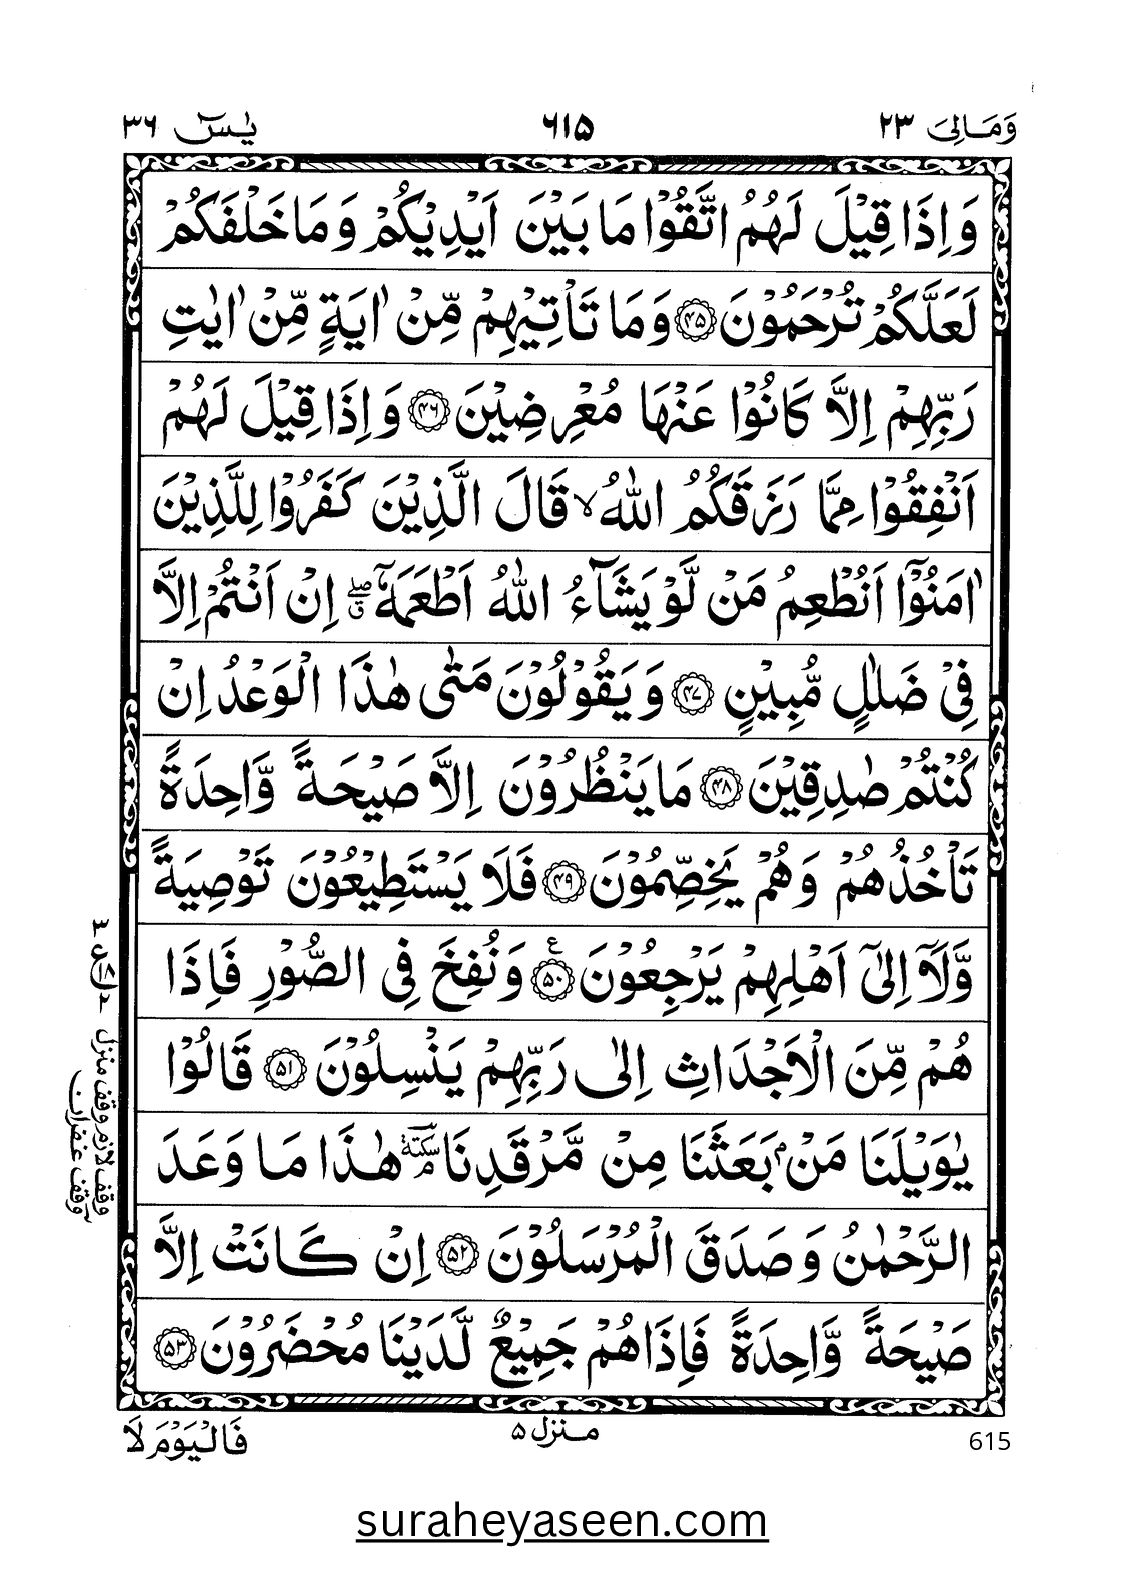 وَمَالِیَ ٢٣
٦١٥
يٰسٓ ٣٦
وَاِذَا قِيْلَ لَهُمُ اتَّقُوْا مَا بَيْنَ اَيْدِيْكُمْ وَمَا خَلْفَكُمْ
لَعَلَّكُمْ تُرْحَمُوْنَ ﴿۴۵﴾ وَمَا تَاْتِيْهِمْ مِّنْ اٰيَةٍ مِّنْ اٰيٰتِ
رَبِّهِمْ اِلَّا كَانُوْا عَنْهَا مُعْرِضِيْنَ ﴿۴۶﴾ وَاِذَا قِيْلَ لَهُمْ
اَنْفِقُوْا مِمَّا رَزَقَكُمُ اللّٰهُ ۙ قَالَ الَّذِيْنَ كَفَرُوْا لِلَّذِيْنَ
اٰمَنُوْۤا اَنُطْعِمُ مَنْ لَّوْ يَشَآءُ اللّٰهُ اَطْعَمَهٗۤ ۖق اِنْ اَنْتُمْ اِلَّا
فِيْ ضَلٰلٍ مُّبِيْنٍ ﴿۴۷﴾ وَيَقُوْلُوْنَ مَتٰى هٰذَا الْوَعْدُ اِنْ
كُنْتُمْ صٰدِقِيْنَ ﴿۴۸﴾ مَا يَنْظُرُوْنَ اِلَّا صَيْحَةً وَّاحِدَةً
تَاْخُذُهُمْ وَهُمْ يَخِصِّمُوْنَ ﴿۴۹﴾ فَلَا يَسْتَطِيْعُوْنَ تَوْصِيَةً
وَّلَاۤ اِلٰۤى اَهْلِهِمْ يَرْجِعُوْنَ ﴿۵۰﴾ ع وَنُفِخَ فِي الصُّوْرِ فَاِذَا
هُمْ مِّنَ الْاَجْدَاثِ اِلٰى رَبِّهِمْ يَنْسِلُوْنَ ﴿۵۱﴾ قَالُوْا
يٰوَيْلَنَا مَنْۢ بَعَثَنَا مِنْ مَّرْقَدِنَا ۘ سكتة هٰذَا مَا وَعَدَ
الرَّحْمٰنُ وَصَدَقَ الْمُرْسَلُوْنَ ﴿۵۲﴾ اِنْ كَانَتْ اِلَّا
صَيْحَةً وَّاحِدَةً فَاِذَا هُمْ جَمِيْعٌ لَّدَيْنَا مُحْضَرُوْنَ ﴿۵۳﴾
وقف لازم وقف منزل
وقف غفران
منزل ۵
فَالْيَوْمَ لَا
615
suraheyaseen.com